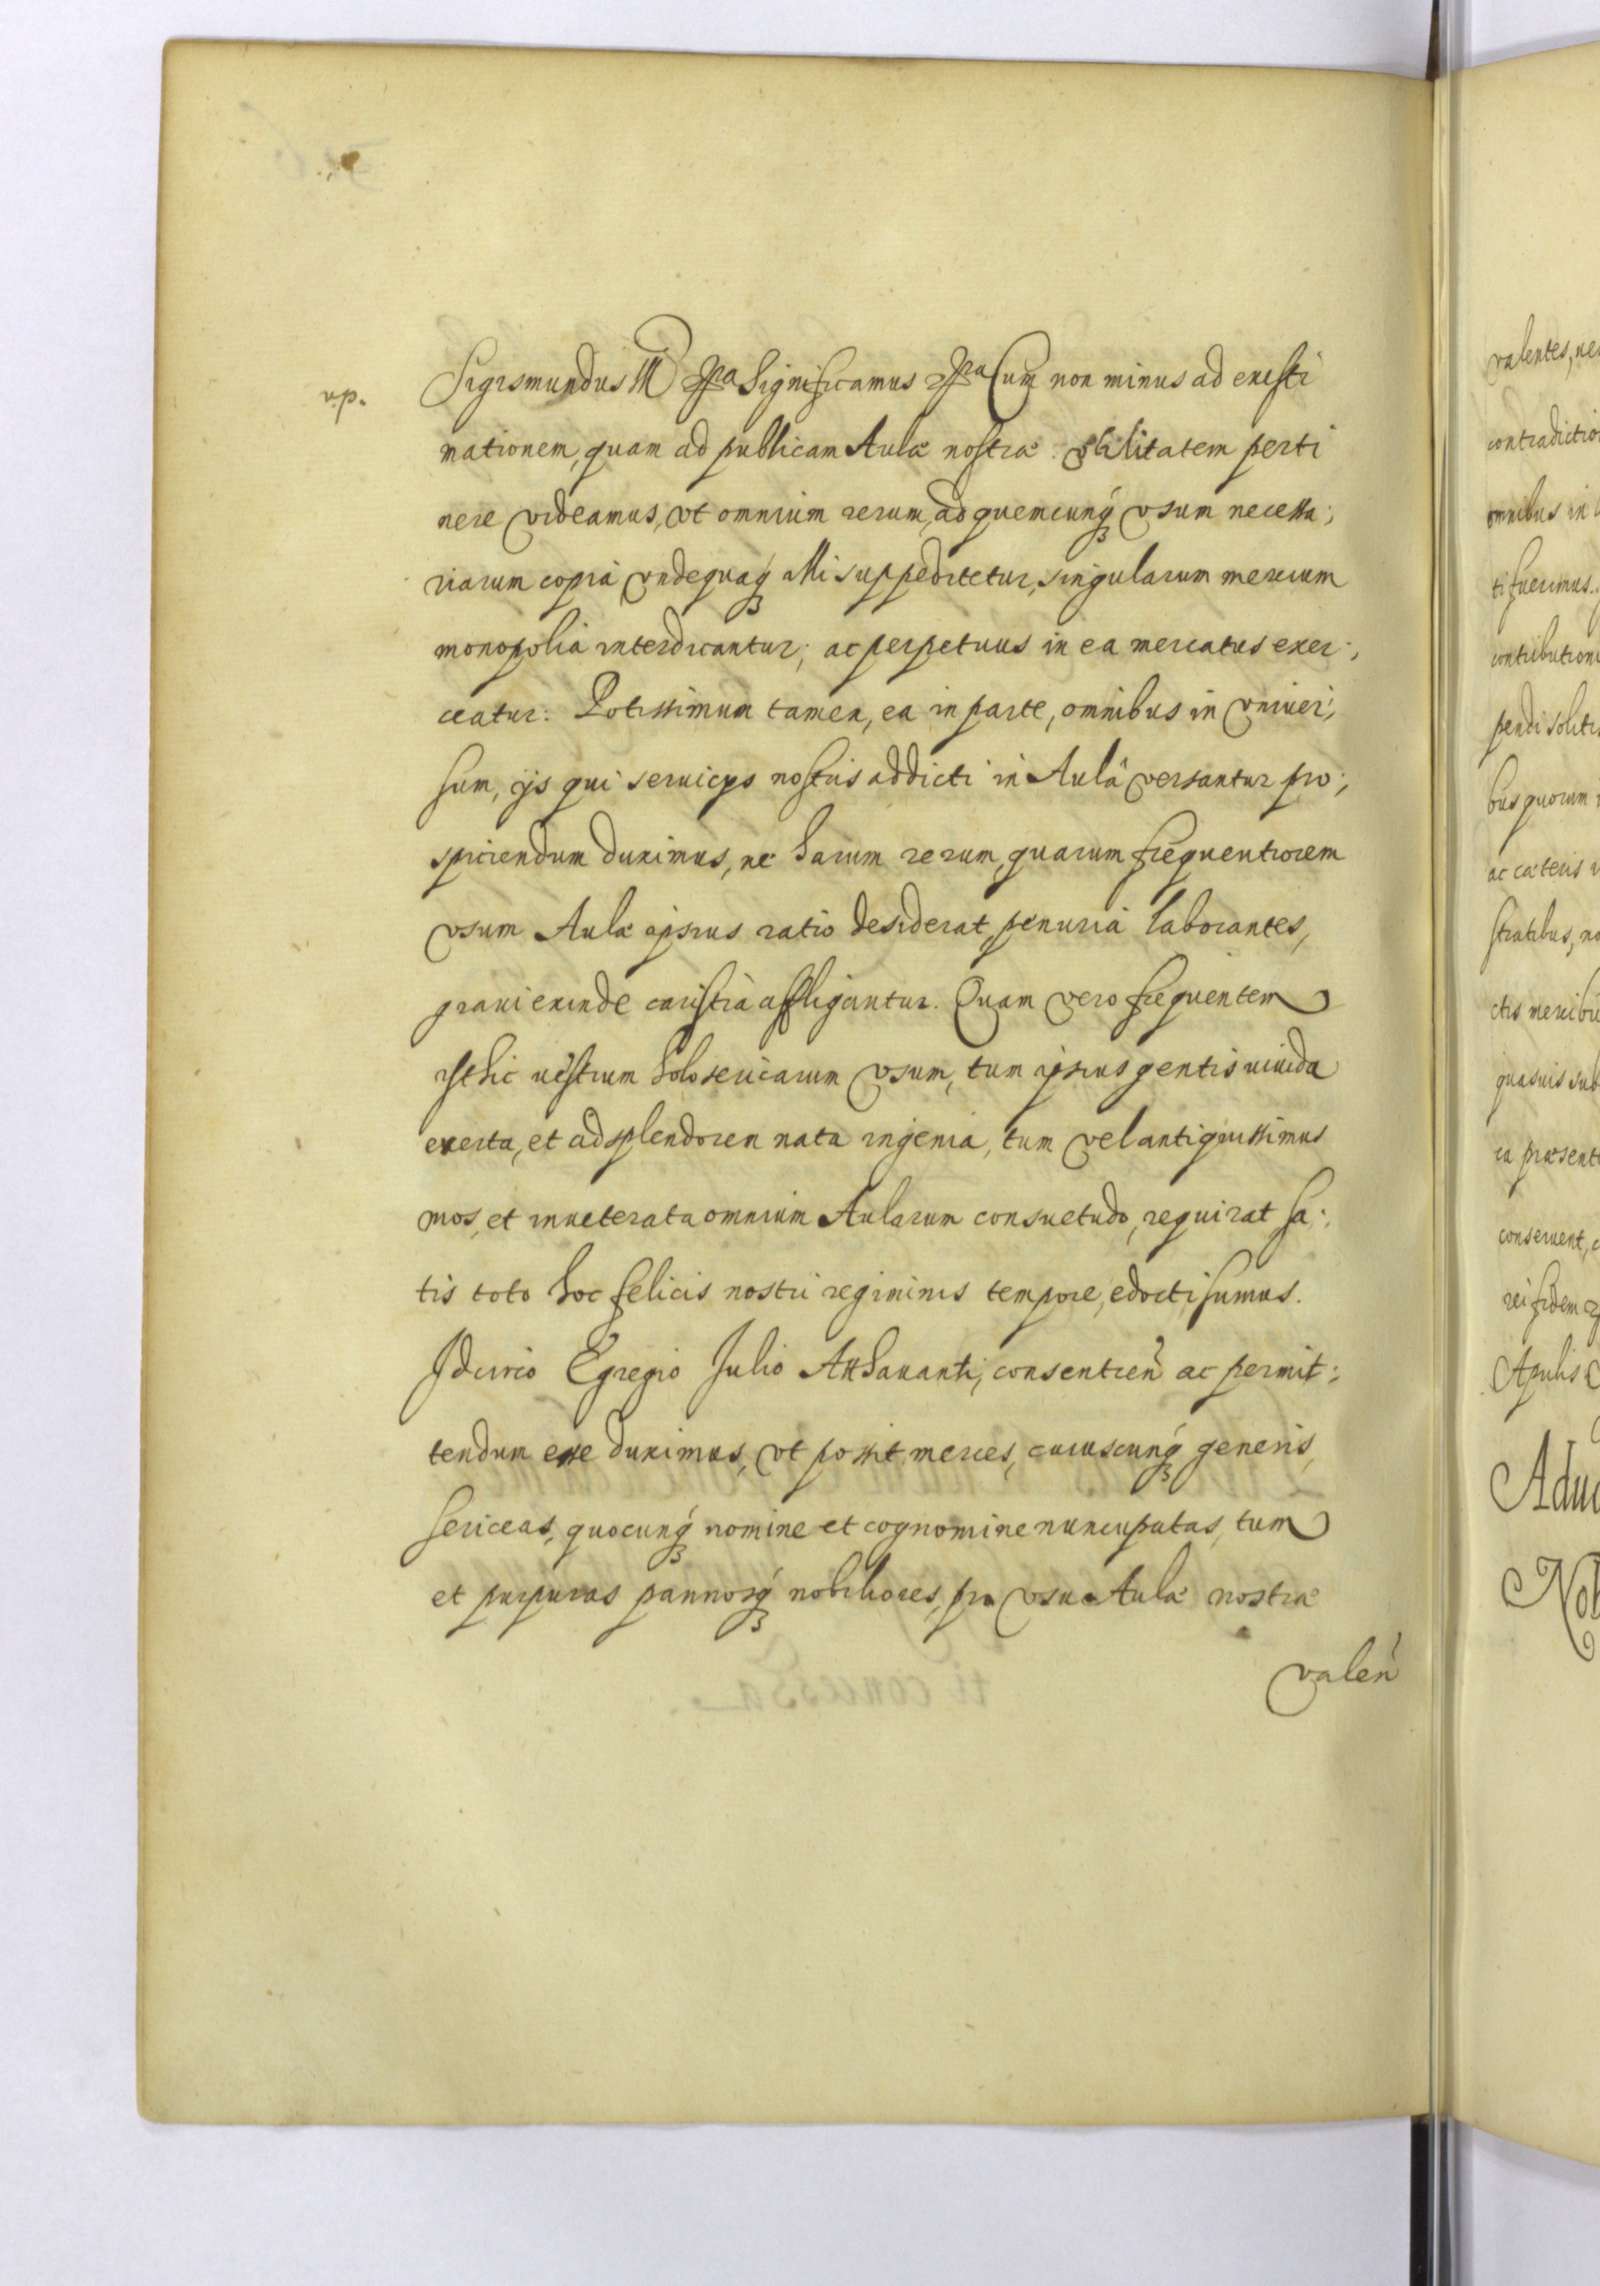 v.p.
Sigismundus III etca Significamus etca Cum non minus ad existi
mationem, quam ad publicam Aulæ nostræ utilitatem perti
nere videamus, vt omnium rerum, ad quemcunq́ vsum necessa;
riarum copia vndequaq́ illi suppeditetur, singularum mercium
monopolia interdicantur; ac perpetuus in ea mercatus exer;
ceatur: Potissimum tamen, ea in parte, omnibus in vniuer;
sum, ijs qui seruicijs nostris addicti in Aulâ versantur pro;
spiciendum duximus, ne harum rerum, quarum frequentiorem
vsum Aulæ ipsius ratio desiderat, penuria laborantes,
graui exinde caristia affligantur. Quam vero frequentem
isthic vestium holosericarum vsum, tum ipsius gentis viuida
exerta, et ad splendorem nata ingenia, tum vel antiquissimus
mos, et inueterata omnium Aularum consuetudo, requirat sa;
tis toto hoc felicis nostri regiminis tempore, edocti sumus.
Idcirco Egregio Julio Atthauanti, consentien̄ ac permit;
tendum esse duximus, vt possit merces, cuiuscunq́ generis,
sericeas, quocunq́ nomine et cognomine nuncupatas, tum
et purpuras pannosq́ nobiliores, pro vsu Aulæ nostræ
valen̄
valentes, ne
contradictio
omnibus in
ti fuerimus.
contribution
pendi solit
bus quorum
ac cæteris
stratibus, no
ctis mercibu
quasuis sub
ea præsent
conseruent,
rei fidem
Apulis
Adu
Nob